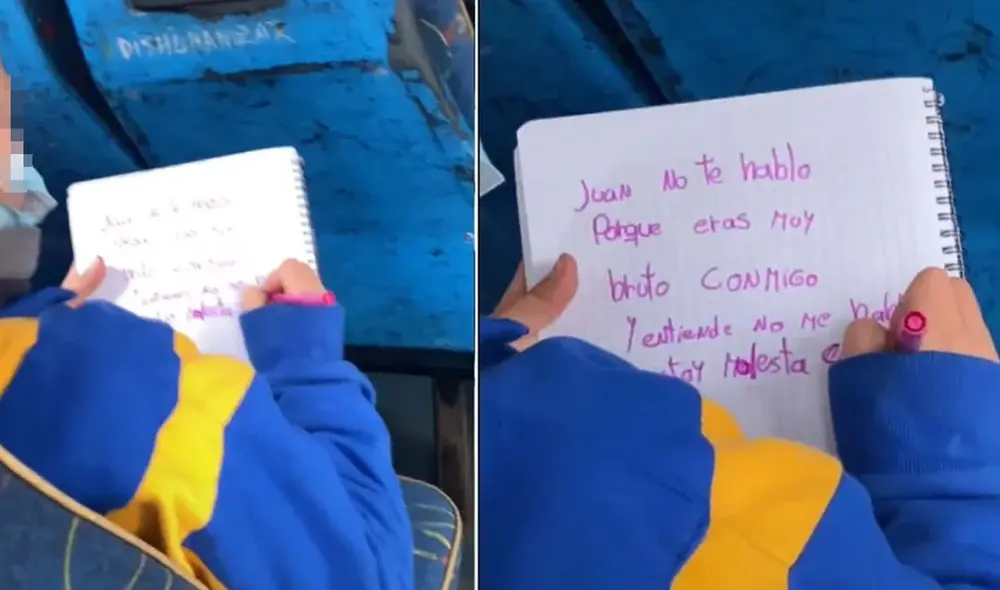 Juan No te hablo
Porque eras Muy
bruto CONMIGO
Y entiende No Me
Molesta